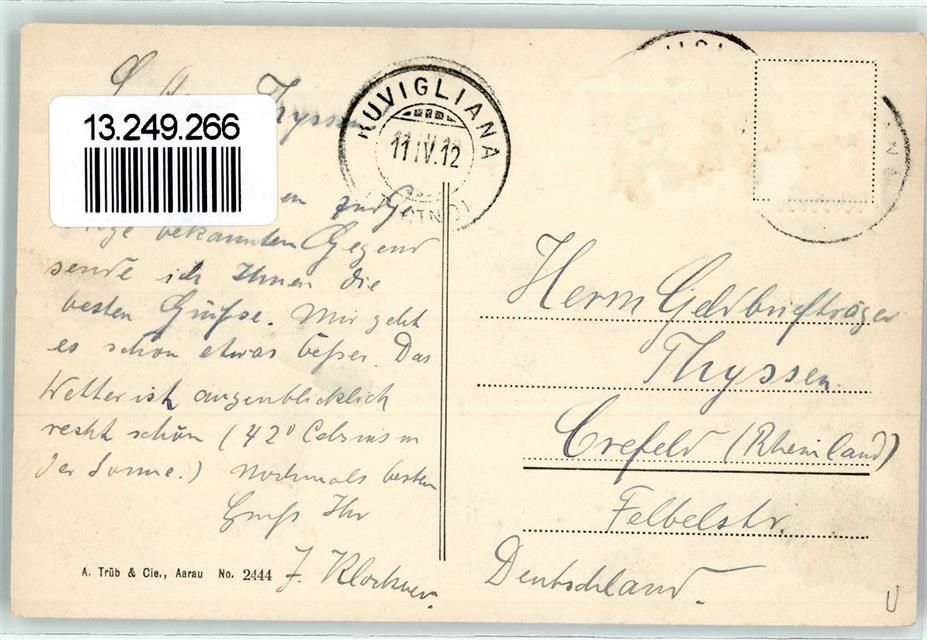 Thyssen
13.249.266
RUVIGLIANA
11.IV.12
bekannten Gegend
sende ich Ihnen die
besten Grüsse. Mir geht
es schon etwas besser. Das
Wetter ist augenblicklich
recht schön (42° Celsius in
der Sonne.) Nochmals besten
Gruß Ihr
J. Klockner.
A. Trüb & Cie., Aarau No. 2444
Herrn Geldbriefträger
Thyssen
Crefeld (Rheinland)
Felbelstr.
Deutschland.
U